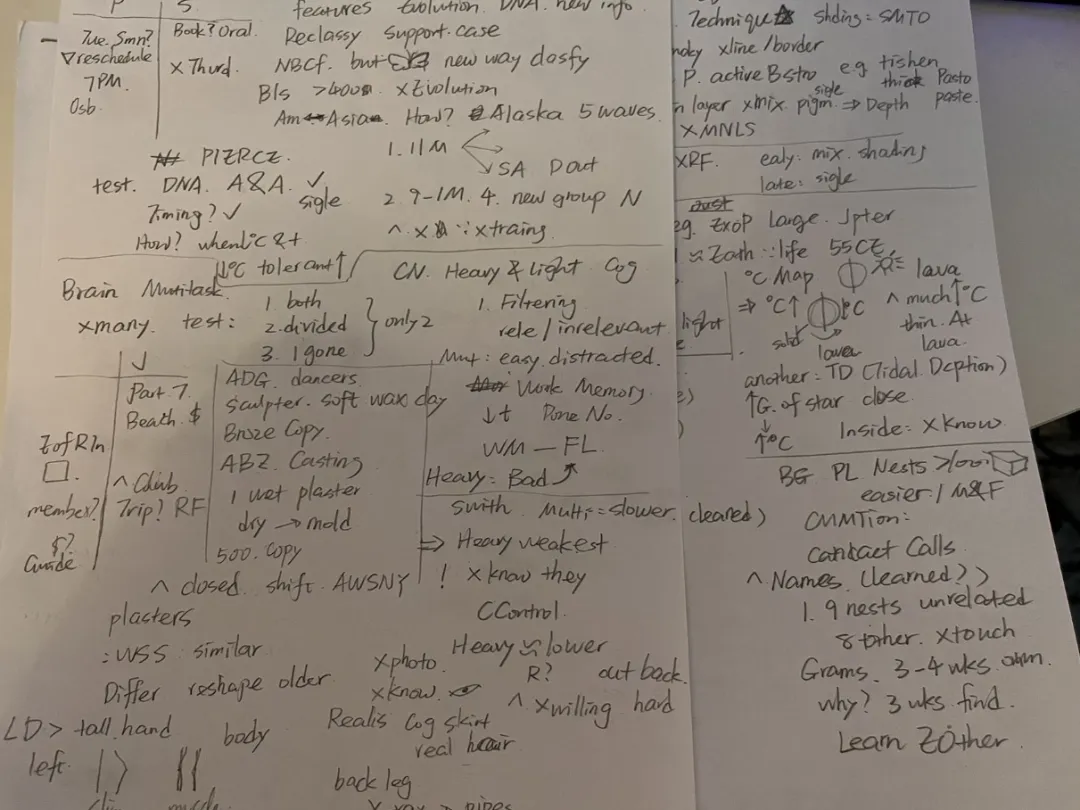 P S.
features Evolution. DNA. new info.
Tue. Smn?
Book? Oral.
Reclassy support. case
▽reschedule
7PM.
Osb
x Third.
NBCf. but new way dosfy
BIs >400 . x Evolution
Am Asia . How? Alaska 5 waves.
PIERCE.
test. DNA. A&A. ✓
sigle
Timing? ✓
How? when ℃ & t
↓℃ tolerant ↑
1. 11M
SA D out
2. 9-1M. 4. new group N
^ . x ∵ x trains.
Brain Mutitask.
xmany. test:
1. both
2. divided
3. 1 gone
only 2
CN. Heavy & light. Cog
1. Filtering
rele / inrelevant
Mut: easy. distracted.
Work Memory.
↓t Pone No.
WM — FL.
Heavy: Bad
swith. Multi = slower. cleared)
⇒ Heavy weakest
! x know they
CControl.
Heavy ≈ lower
Part 7.
Beath. $
Z of R In
member?
$?
Guide
^ Climb
Trip? RF
ADG. dancers.
sculpter. soft wax clay
Broze Copy.
ABZ. Casting
1 wet plaster
dry → mold
500. copy
^ closed. shift. AWSNY
plasters
: WSS similar
Differ reshape older.
xphoto.
xknow.
R? out back.
^ xwilling hard
LD > tall. hand
body
left.
Realis Cog skirt
real hair
back leg
X ray > pipes
Technique shding: SMTO
xline / border
P. active Bstro e.g tishen
sigle thick Pasto
n layer xmix. pigm. ⇒ Depth paste.
XMNLS
XRF. ealy: mix. shading
late: sigle
eg. ExoP Large. Jpter
≈ Eath ∷ life 55CE
℃ Map
lava
⇒ ℃↑ ℃
^ much ↑℃
solid
lava
thin. At
lava.
light
another: TD (Tidal Dception)
↑G. of star close.
↓
↑℃
Inside: x know
BG PL Nests >100
easier. / M&F
CMMTion:
Contact Calls
^ Names (learned?)
1. 9 nests unrelated
8 other. xtouch
Grams. 3-4 wks. own.
why? 3 wks. find.
Learn ZOther.